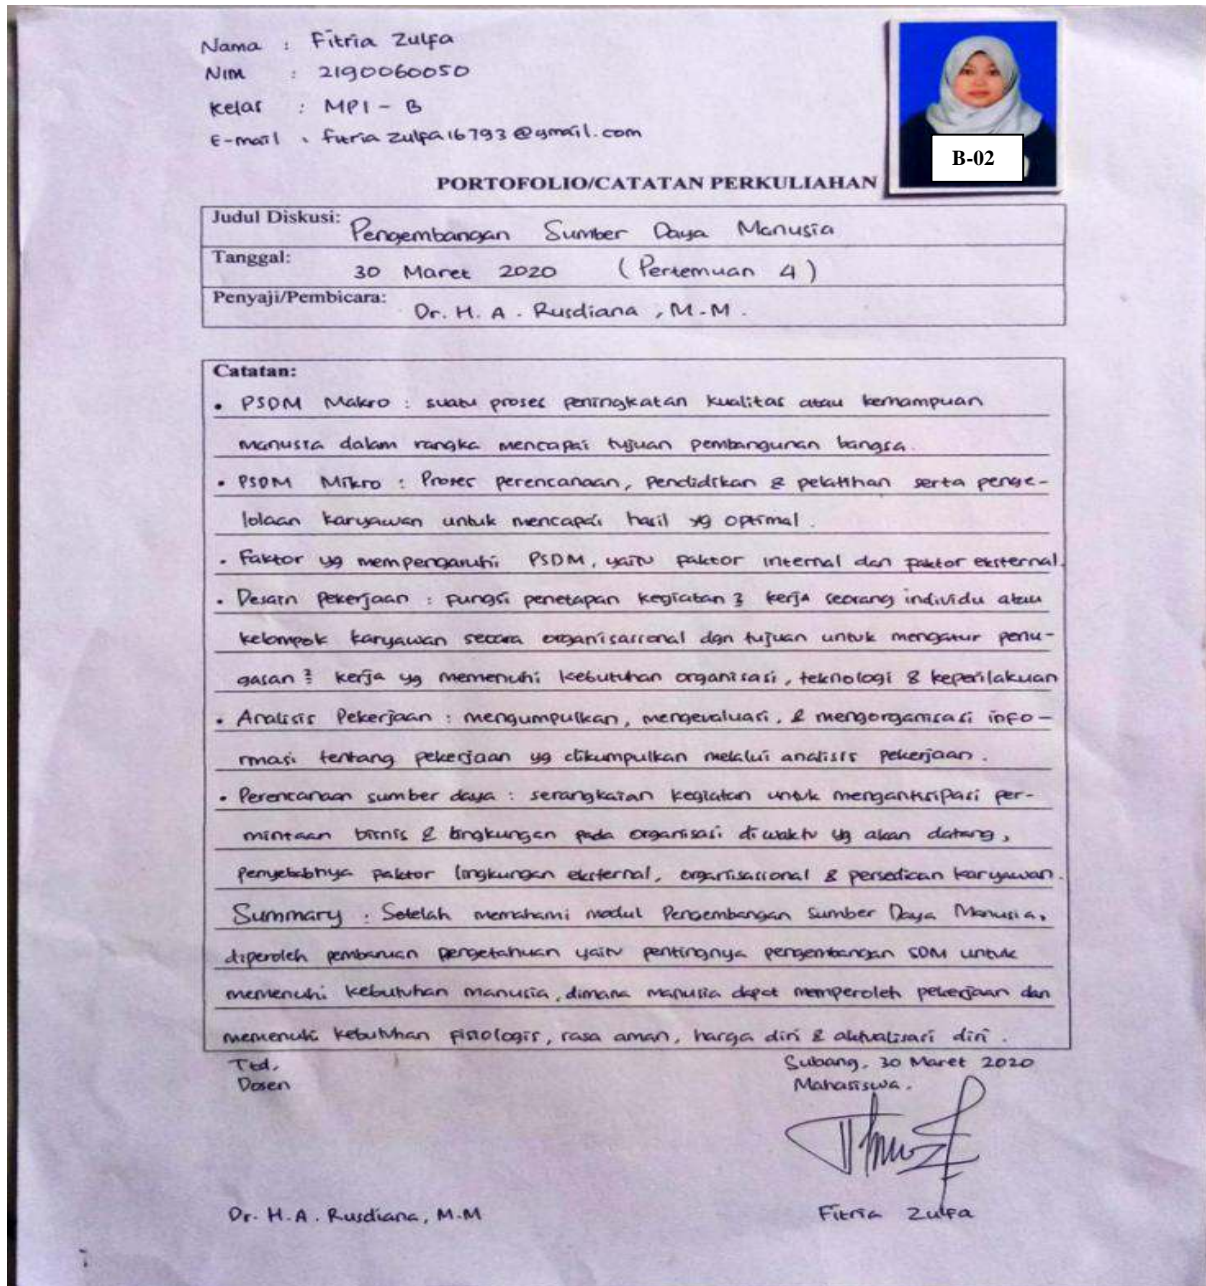 Nama : Fitria Zulfa
NIM : 2190060050
Kelas : MPI - B
E-mail : fitria zulfa16793@gmail.com
B-02
PORTOFOLIO/CATATAN PERKULIAHAN
Judul Diskusi: Pengembangan Sumber Daya Manusia
Tanggal: 30 Maret 2020 (Pertemuan 4)
Penyaji/Pembicara: Dr. H. A. Rusdiana, M.M.
Catatan:
• PSDM Makro : suatu proses peningkatan kualitas atau kemampuan
manusia dalam rangka mencapai tujuan pembangunan bangsa.
• PSDM Mikro : Proses perencanaan, pendidikan & pelatihan serta penge-
lolaan karyawan untuk mencapai hasil yg optimal.
• Faktor yg mempengaruhi PSDM, yaitu faktor internal dan faktor eksternal.
• Desain Pekerjaan : fungsi penetapan kegiatan2 kerja seorang individu atau
kelompok karyawan secara organisasional dgn tujuan untuk mengatur penu-
gasan2 kerja yg memenuhi kebutuhan organisasi, teknologi & keperilakuan
• Analisis Pekerjaan : mengumpulkan, mengevaluasi, & mengorganisasi info-
rmasi tentang pekerjaan yg dikumpulkan melalui analisis pekerjaan.
• Perencanaan sumber daya : serangkaian kegiatan untuk mengantisipasi per-
mintaan bisnis & lingkungan pada organisasi diwaktu yg akan datang,
penyebabnya faktor lingkungan eksternal, organisasional & persediaan karyawan.
Summary : Setelah memahami modul Pengembangan Sumber Daya Manusia,
diperoleh pembaruan pengetahuan yaitu pentingnya pengembangan SDM untuk
memenuhi kebutuhan manusia, dimana manusia dapat memperoleh pekerjaan dan
memenuhi kebutuhan fisiologis, rasa aman, harga diri & aktualisasi diri.
Ttd, Subang, 30 Maret 2020
Dosen Mahasiswa,
Dr. H. A. Rusdiana, M.M Fitria Zulfa